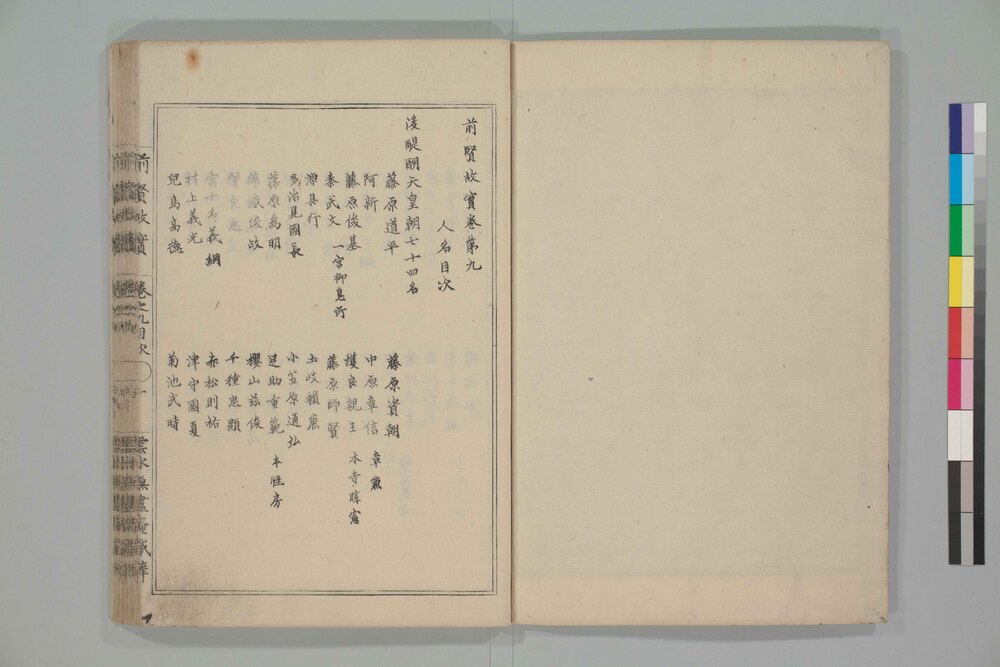 前賢故實卷第九
人名目次
後醍醐天皇朝七十四名
藤原道平
藤原資朝
阿新
中原章信 章兼
藤原俊基
護良親王 本寺
秦武文 一宮御息所
藤原師賢
源具行
土岐頼兼
多治見國長
小笠原通弘
藤原為明
足助重範 本性房
錦織俊政
櫻山茲俊
千種忠顯
富士名義綱
赤松則祐
村上義光
津守國夏
兒島高德
菊池武時
前賢故實 卷之九目次 一 雲水無盡庵藏